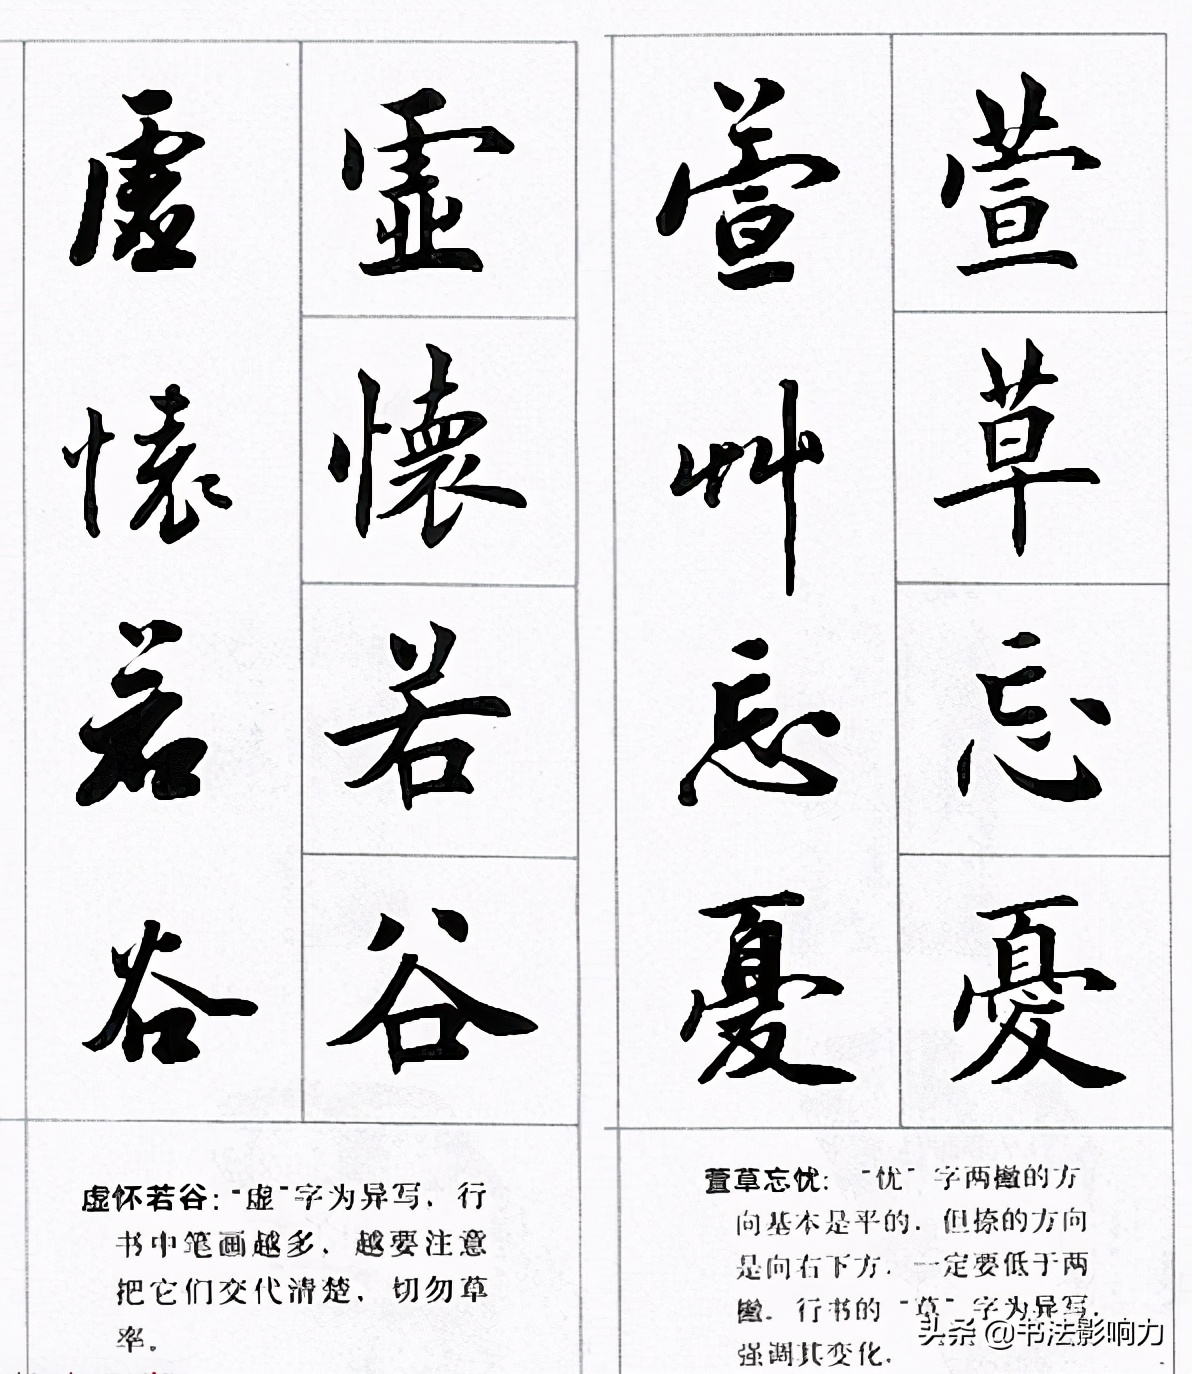 虛懷若谷
虛懷若谷
虚怀若谷：“虚”字为异写，行
书中笔画越多，越要注意
把它们交代清楚，切勿草
率。
萱艸忘憂
萱草忘憂
萱草忘忧：“忧”字两撇的方
向基本是平的，但捺的方向
是向右下方，一定要低于两
撇。行书的“草”字为异写，
强调其变化。
头条 @书法影响力